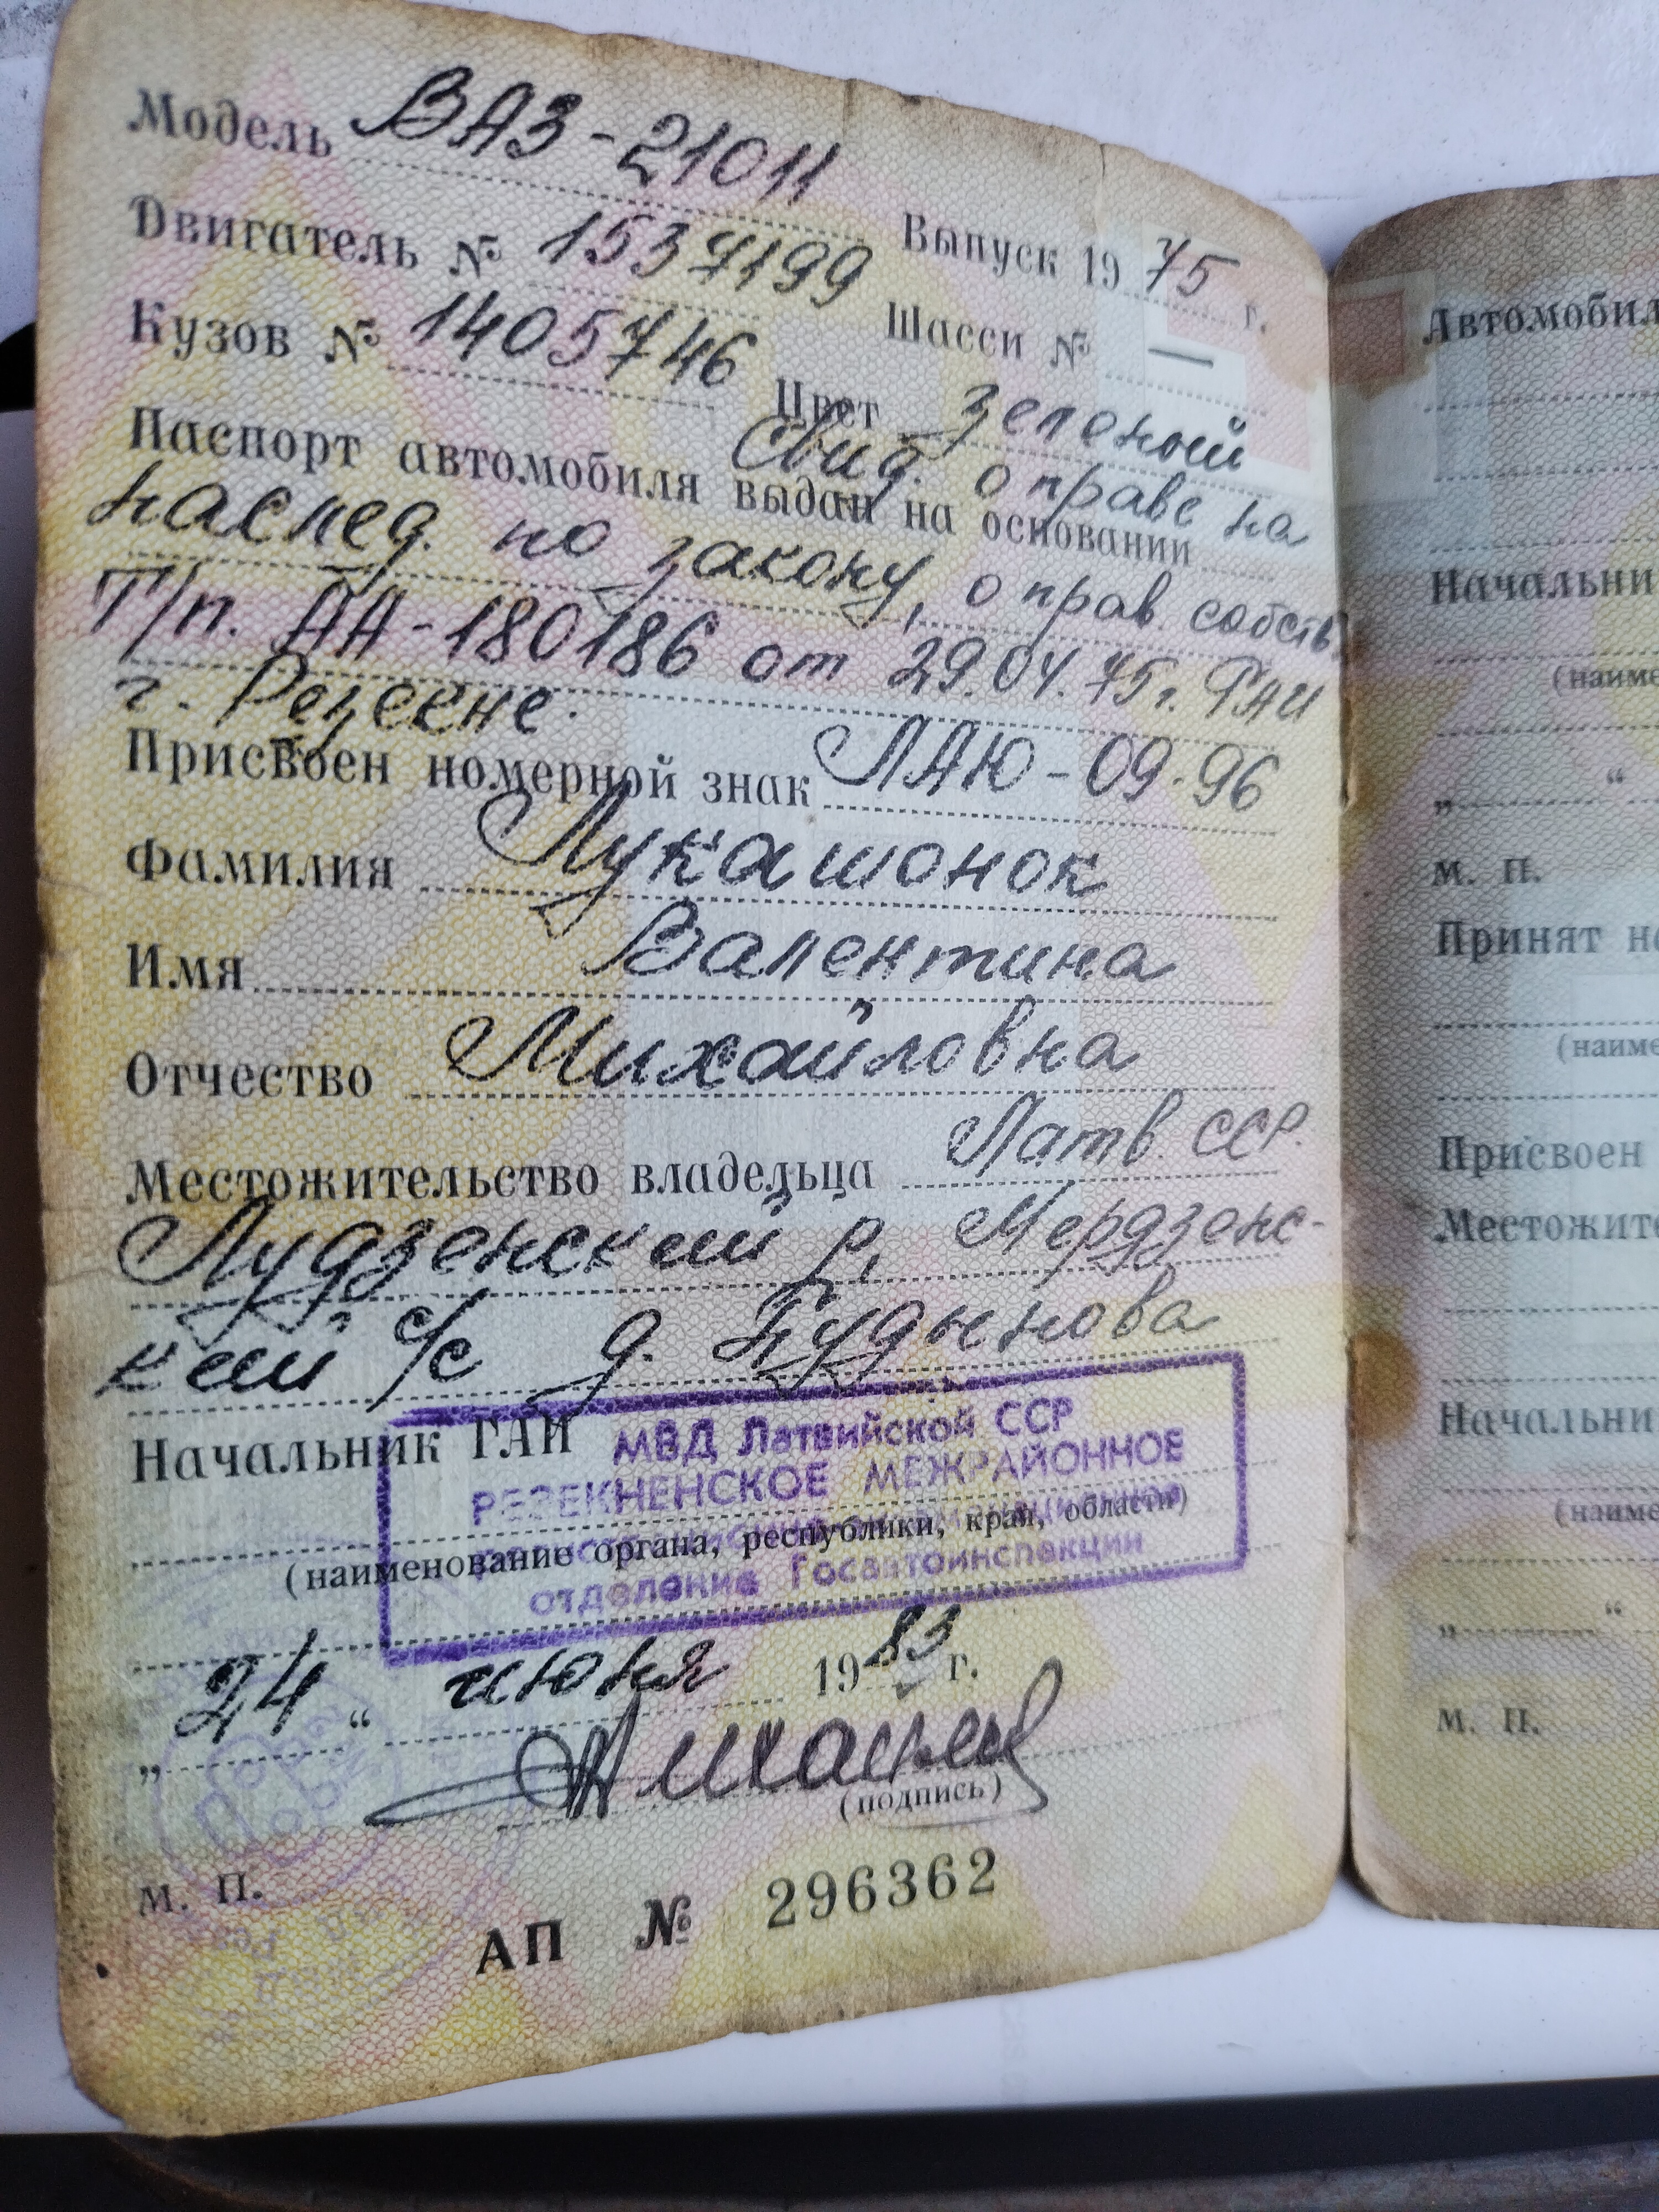 Модель ВАЗ-21011
Выпуск 1975 г.
Двигатель № 1537199
Шасси № —
Кузов № 1405746
Цвет зеленый
Паспорт автомобиля выдан на основании Свид. о праве на
наслед. по закону, о прав. собств.
Т/п. АА-180186 от 29.04.75г. РАИ
г. Резекне.
Присвоен номерной знак ЛАЮ-09-96
Фамилия Лукашонок
Имя Валентина
Отчество Михайловна
Местожительство владельца Латв. ССР.
Лудзенский р, Мердзенс-
кий с/с д. Будынова
Начальник ГАИ
МВД Латвийской ССР
РЕЗЕКНЕНСКОЕ МЕЖРАЙОННОЕ
(наименование органа, республики, края, области)
отделение Госавтоинспекции
„24“ июня 1983 г.
(подпись)
М. П.
АП № 296362
Автомобил
Начальни
(наиме
„ “
М. П.
Принят н
(наиме
Присвоен
Местожит
Начальни
(наиме
„ “
М. П.